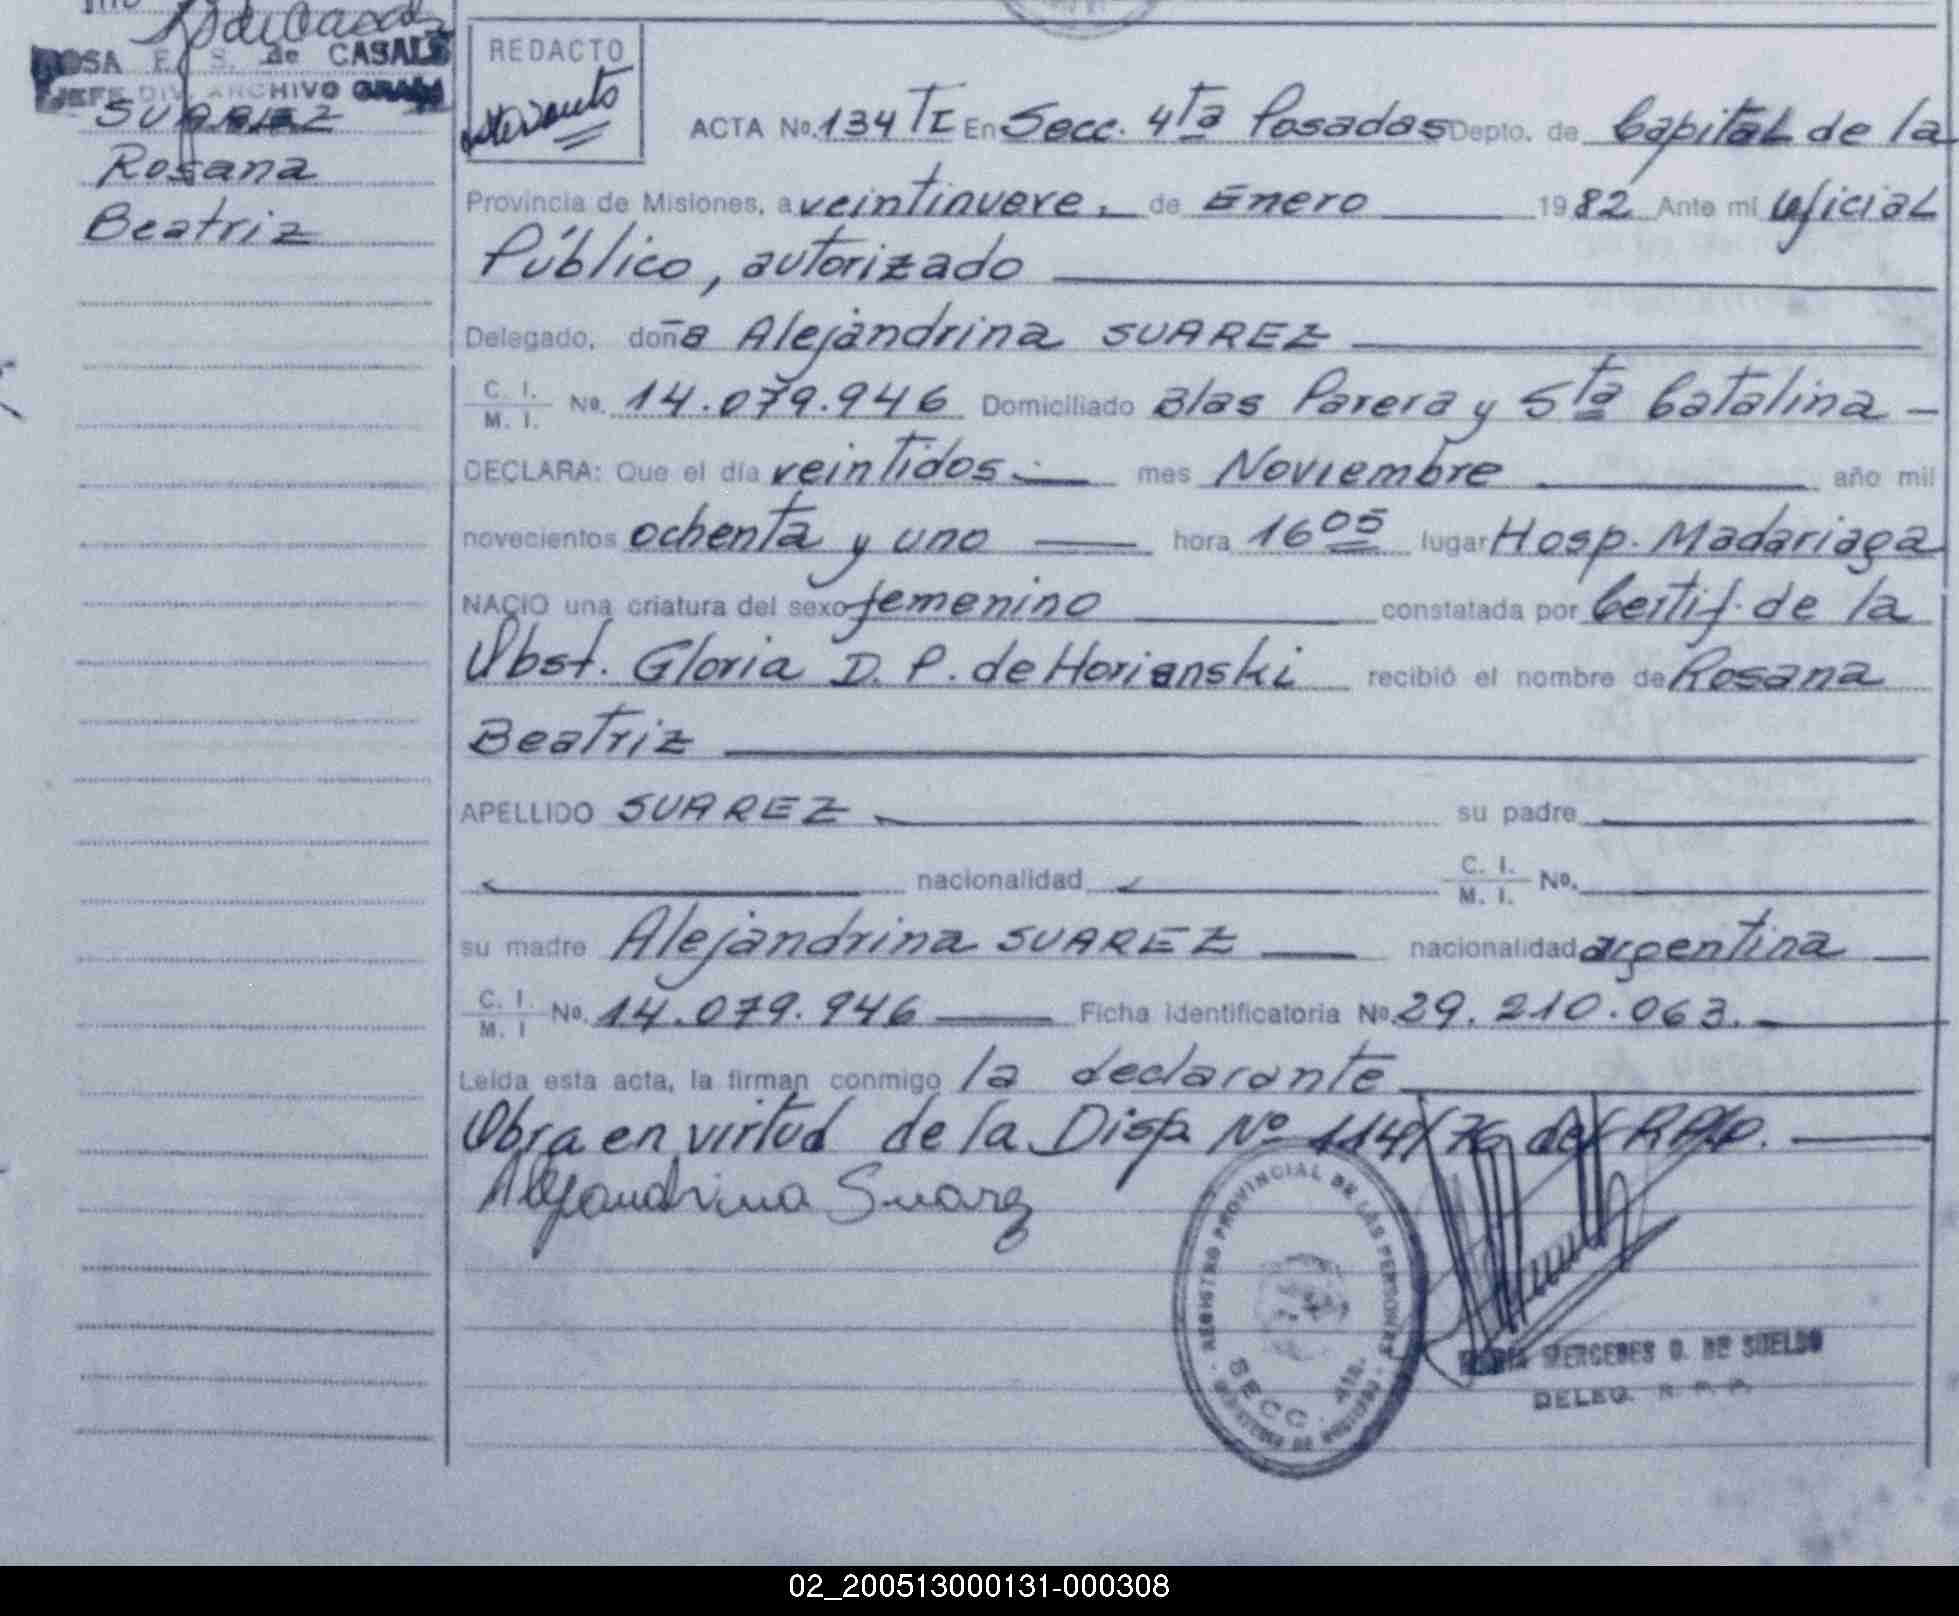 ROSA E. S. de CASALS
JEFE DIV. ARCHIVO GRAL
SUAREZ
Rosana
Beatriz
REDACTO
ACTA No. 134 TI En Secc. 4ta Posadas Depto. de Capital de la
Provincia de Misiones, a veintinueve. de Enero 1982 Ante mi Oficial
Público, autorizado
Delegado, doña Alejandrina SUAREZ
C. I.
M. I. No. 14.079.946 Domiciliado Blas Parera y Sta Catalina -
DECLARA: Que el día veintidos.- mes Noviembre año mil
novecientos ochenta y uno hora 16 05 lugar Hosp. Madariaga
NACIO una criatura del sexo femenino constatada por Certif. de la
Obst. Gloria D. P. de Horianski recibió el nombre de Rosana
Beatriz
APELLIDO SUAREZ su padre
nacionalidad C. I.
M. I. No.
su madre Alejandrina SUAREZ nacionalidad argentina
C. I.
M. I No. 14.079.946 Ficha identificatoria No. 29.210.063.
Leída esta acta, la firman conmigo la declarante
Obra en virtud de la Disp. Nº 114/76 del RPP.
Alejandrina Suarez
REGISTRO PROVINCIAL DE LAS PERSONAS
SECC. 4ta.
MARIA MERCEDES O. DE SUELDO
DELEG. R. P. P.
02_200513000131-000308